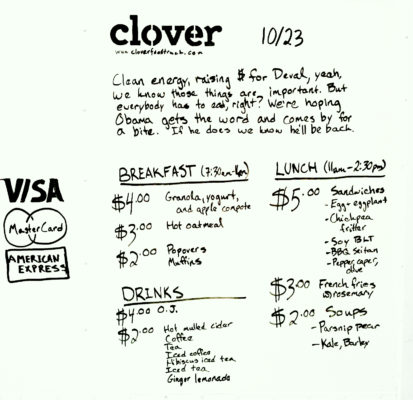 clover
www.cloverfoodtruck.com
10/23
Clean energy, raising $ for Deval, yeah,
we know those things are important. But
everybody has to eat, right? We're hoping
Obama gets the word and comes by for
a bite. If he does we know he'll be back.
BREAKFAST (7:30am-11am)
$4.00 Granola, yogurt,
and apple compote
$3.00 Hot oatmeal
$2.00 Popovers
Muffins
DRINKS
$4.00 O.J.
$2.00 Hot mulled cidar
Coffee
Tea
Iced coffee
Hibiscus iced tea
Iced tea
Ginger lemonade
LUNCH (11am-2:30pm)
$5.00 Sandwiches
- Egg-eggplant
- Chickpea
fritter
- Soy BLT
- BBQ Seitan
- Pepper, caper,
olive
$3.00 French fries
w/ rosemary
$2.00 Soups
- Parsnip pear
- Kale, Barley
VISA
MasterCard
AMERICAN
EXPRESS